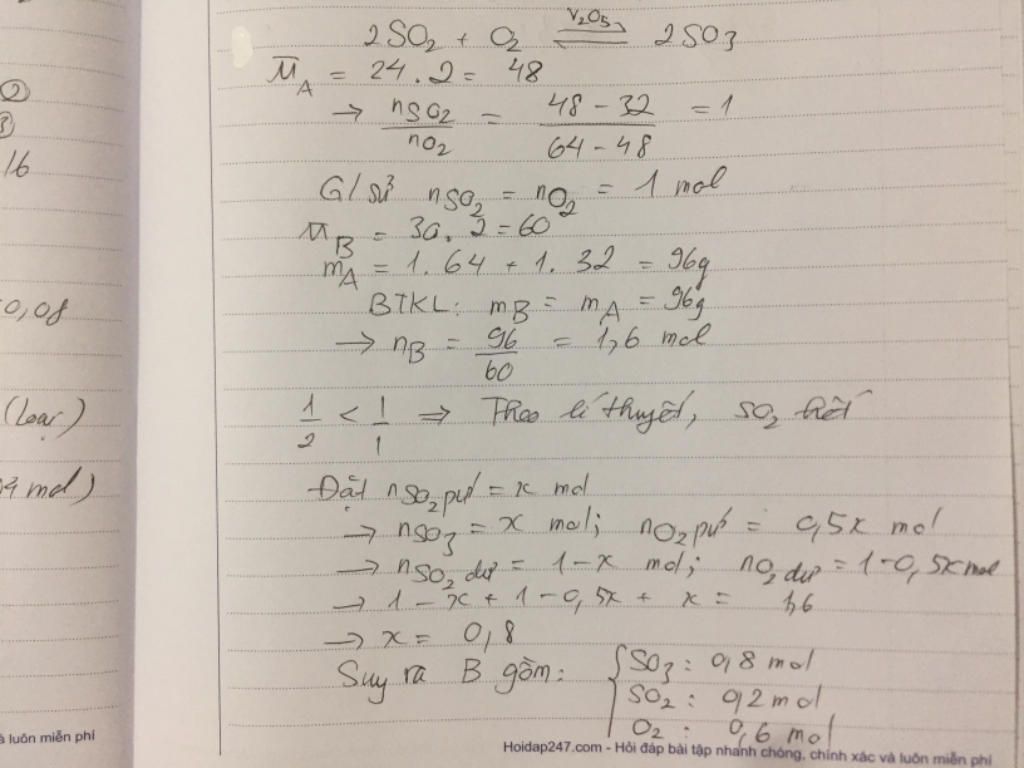 2SO₂ + O₂ ⇌ 2SO₃
V₂O₅
M̅_A = 24.2 = 48
→ nSO₂/nO₂ = (48 - 32)/(64 - 48) = 1
G/sử nSO₂ = nO₂ = 1 mol
M_B = 30.2 = 60
m_A = 1.64 + 1.32 = 96g
BTKL: m_B = m_A = 96g
→ n_B = 96/60 = 1,6 mol
1/2 < 1/1 ⇒ Theo lí thuyết, SO₂ hết
Đặt nSO₂pứ = x mol
→ nSO₃ = x mol; nO₂pứ = 0,5x mol
→ nSO₂ dư = 1-x mol; nO₂ dư = 1-0,5x mol
→ 1 - x + 1 - 0,5x + x = 1,6
→ x = 0,8
Suy ra B gồm: { SO₃: 0,8 mol
SO₂: 0,2 mol
O₂: 0,6 mol
②
16
0,08
(loại)
mol)
à luôn miễn phí
Hoidap247.com - Hỏi đáp bài tập nhanh chóng, chính xác và luôn miễn phí